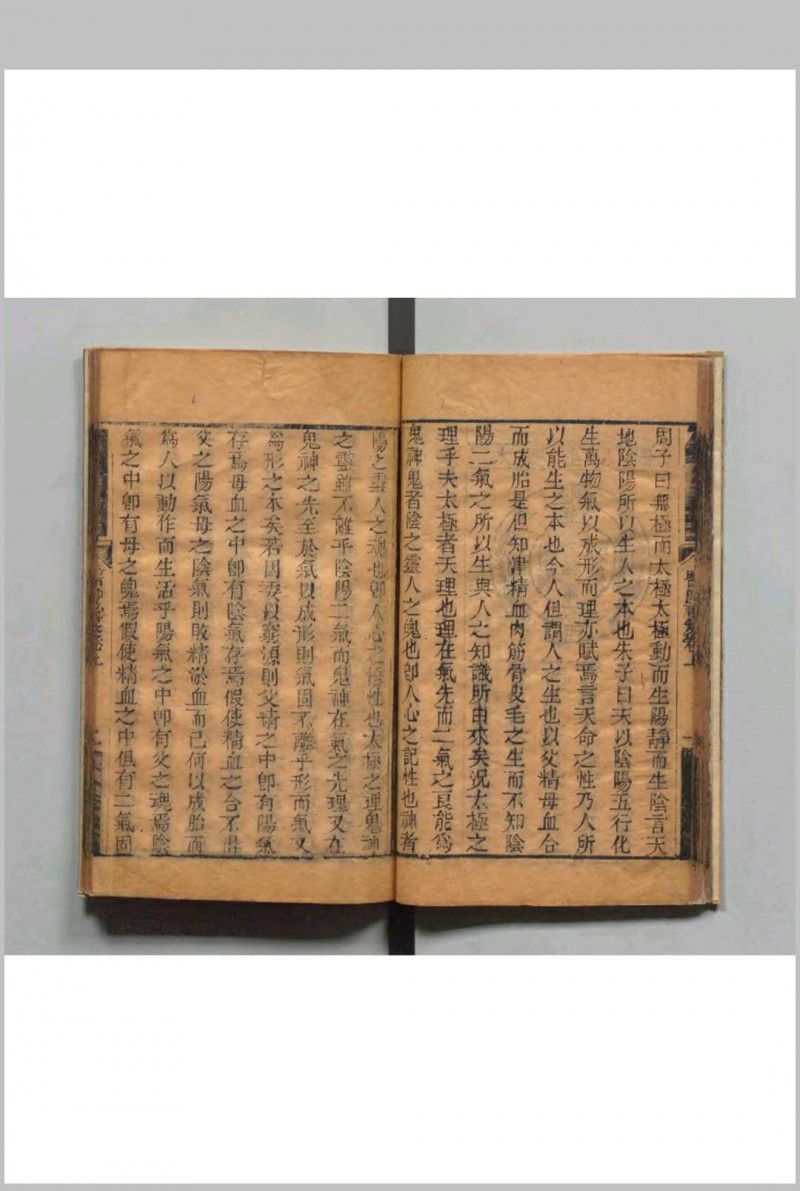 周子曰無極而太極太極動而生陽靜而生陰言天
地陰陽所以生人之本也朱子曰天以陰陽五行化
生萬物氣以成形而理亦賦焉言天命之性乃人所
以能生之本也今人但謂人之生也以父精母血合
而成胎是但知津精血肉筋骨皮毛之生而不知陰
陽二氣之所以生與人之知識所由來矣況太極之
理乎夫太極者天理也理在氣先而二氣之良能爲
鬼神鬼者陰之靈人之魄也卽人心之記性也神者
陽之靈人之魂也卽人心之悟性也太極之理鬼神
之靈雖不離乎陰陽二氣而鬼神在氣之先理又在
鬼神之先至於氣以成形則氣固不離乎形而氣又
爲形之本矣若因委以窮源則父精之中卽有陽氣
存焉母血之中卽有陰氣存焉假使精血之合不得
父之陽氣母之陰氣則敗精淤血而已何以成胎而
爲人以動作而生活乎陽氣之中卽有父之魂焉陰
氣之中卽有母之魄焉假使精血之中但有二氣固